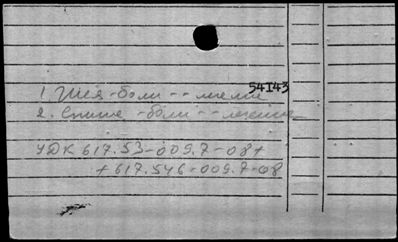 54143
1. Шея - боли -- лечение
2. Спина - боли -- лечение
УДК 617.53-009.7-08+
+617.546-009.7-08